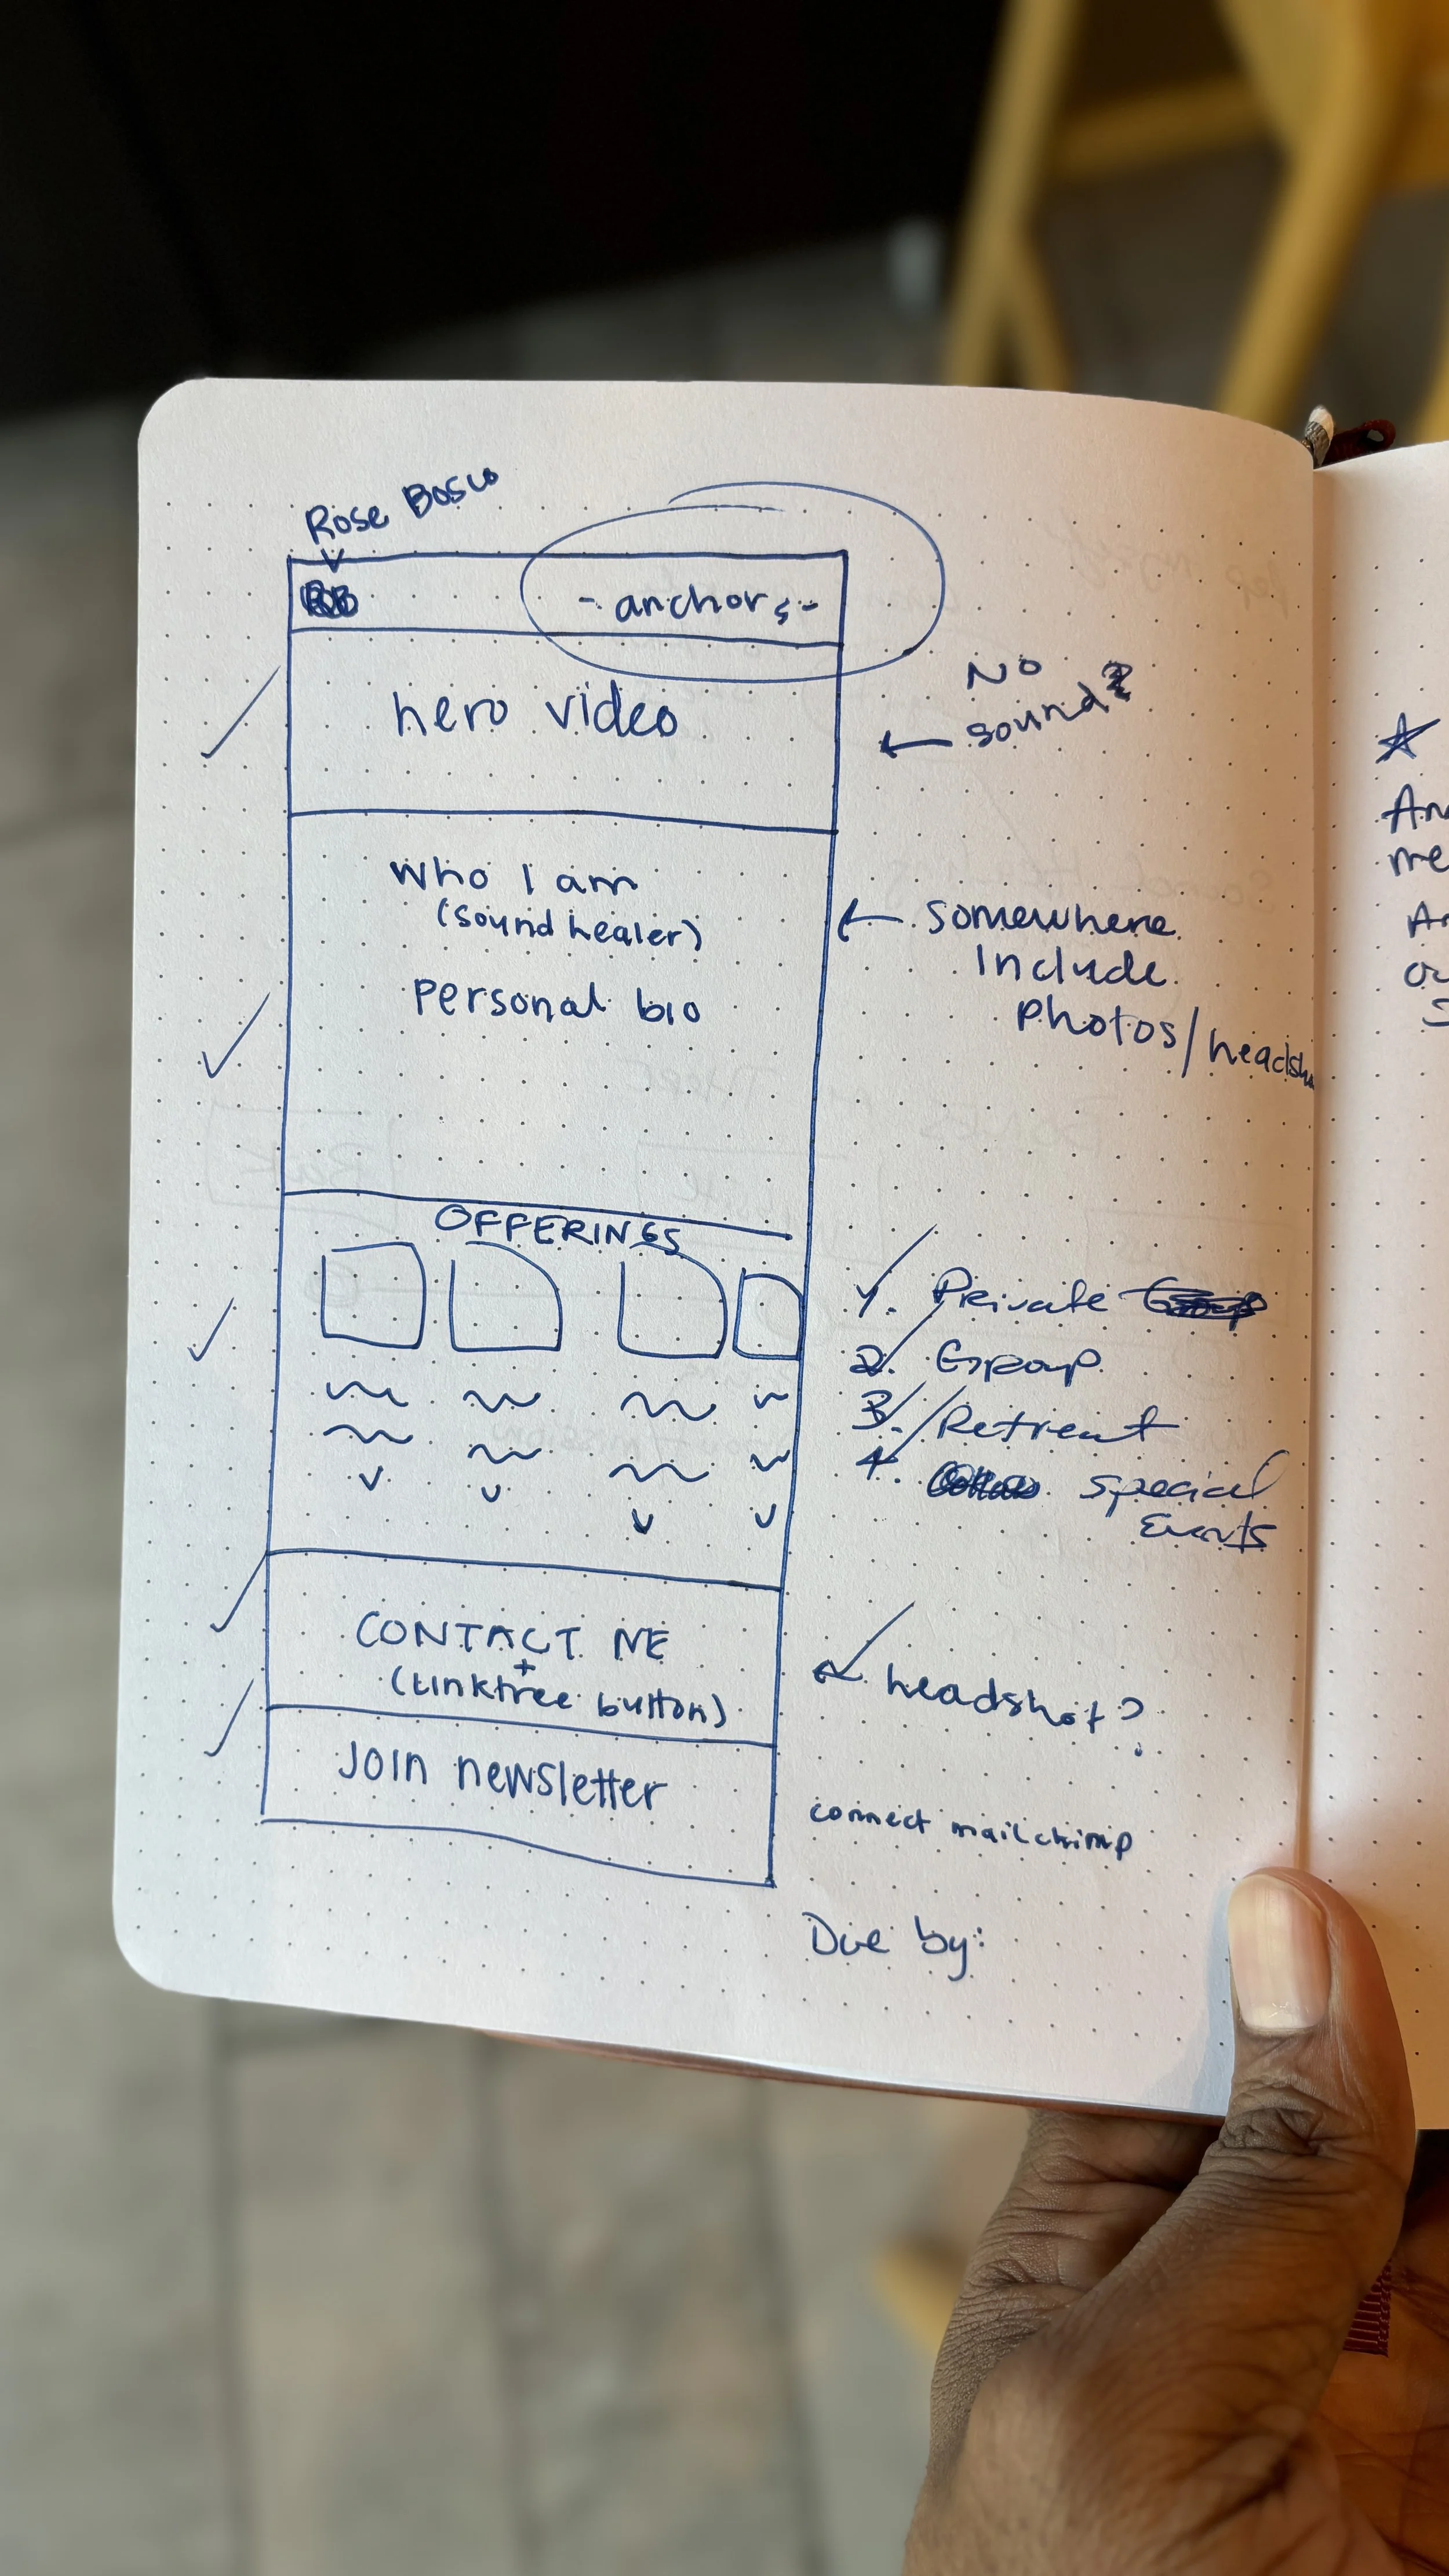 Rose Bosco
- anchors -
hero video
NO
sound?
who I am
(sound healer)
personal bio
somewhere
Include
Photos/headsh
OFFERINGS
1. Private
2. Group
3. Retreat
4. special
Events
CONTACT ME
+
(Linktree button)
headshot?
JOIN newsletter
connect mailchimp
Due by:
An
me